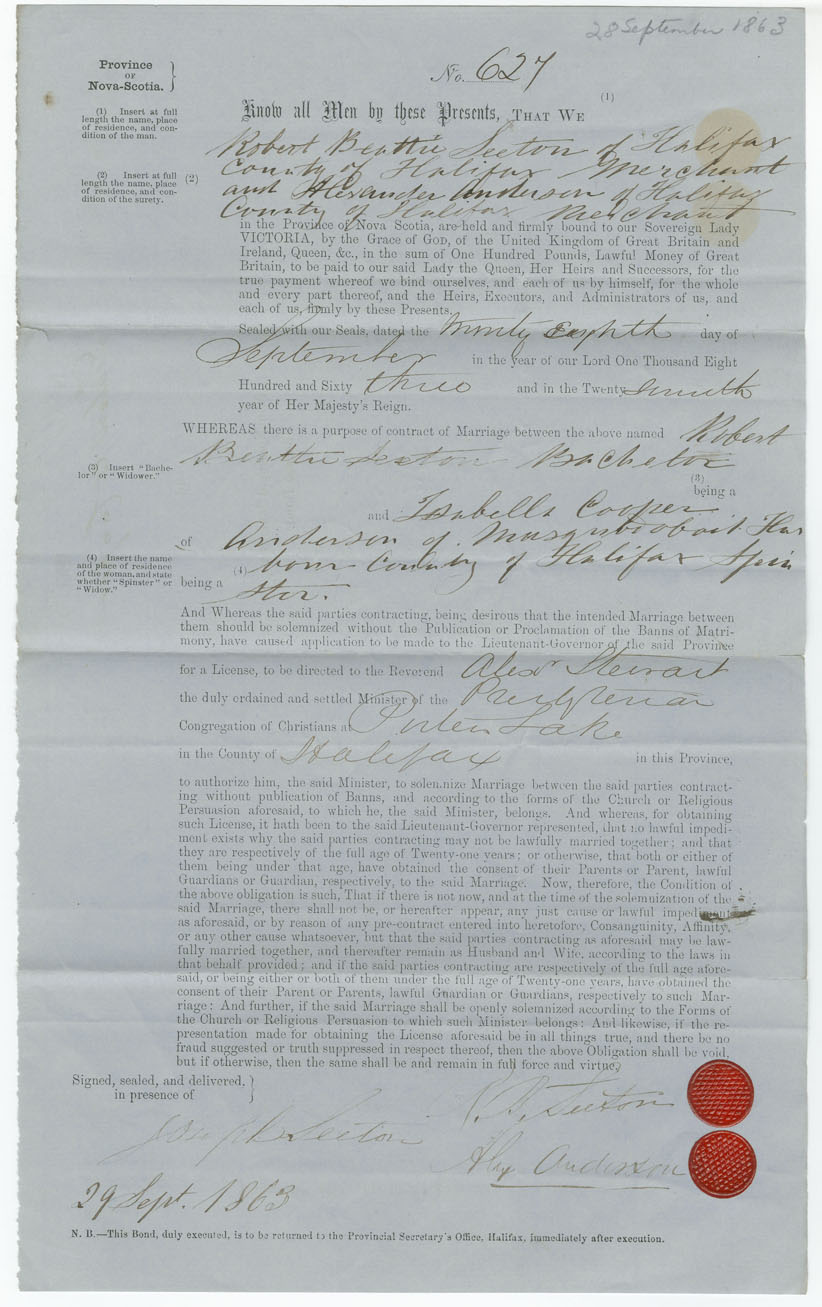 28 September 1863
Province
OF
Nova-Scotia.
No. 627
(1) Insert at full
length the name, place
of residence, and con-
dition of the man.
Know all Men by these Presents, THAT WE (1)
Robert Beattie Seeton of Halifax
(2) Insert at full
length the name, place
of residence, and con-
dition of the surety.
County of Halifax Merchant
(2) and Alexander Anderson of Halifax
County of Halifax Merchant
in the Province of Nova Scotia, are held and firmly bound to our Sovereign Lady
VICTORIA, by the Grace of GOD, of the United Kingdom of Great Britain and
Ireland, Queen, &c., in the sum of One Hundred Pounds, Lawful Money of Great
Britain, to be paid to our said Lady the Queen, Her Heirs and Successors, for the
true payment whereof we bind ourselves, and each of us by himself, for the whole
and every part thereof, and the Heirs, Executors, and Administrators of us, and
each of us, firmly by these Presents.
Sealed with our Seals, dated the twenty eighth day of
September in the year of our Lord One Thousand Eight
Hundred and Sixty three and in the Twenty seventh
year of Her Majesty's Reign.
WHEREAS there is a purpose of contract of Marriage between the above named Robert
Beattie Seeton Bachelor
(3) Insert "Bache-
lor" or "Widower."
(3)
being a
and Isabella Cooper
of Anderson of Musquodoboit Har
(4) Insert the name
and place of residence
of the woman, and state
whether "Spinster" or
"Widow."
(4) bour County of Halifax Spin
being a ster.
And Whereas the said parties contracting, being desirous that the intended Marriage between
them should be solemnized without the Publication or Proclamation of the Banns of Matri-
mony, have caused application to be made to the Lieutenant-Governor of the said Province
for a License, to be directed to the Reverend Alexr Stewart
the duly ordained and settled Minister of the Presbyterian
Congregation of Christians at Porters Lake
in the County of Halifax in this Province,
to authorize him, the said Minister, to solemnize Marriage between the said parties contract-
ing without publication of Banns, and according to the forms of the Church or Religious
Persuasion aforesaid, to which he, the said Minister, belongs. And whereas, for obtaining
such License, it hath been to the said Lieutenant-Governor represented, that no lawful impedi-
ment exists why the said parties contracting may not be lawfully married together; and that
they are respectively of the full age of Twenty-one years; or otherwise, that both or either of
them being under that age, have obtained the consent of their Parents or Parent, lawful
Guardians or Guardian, respectively, to the said Marriage. Now, therefore, the Condition of
the above obligation is such, That if there is not now, and at the time of the solemnization of the
said Marriage, there shall not be, or hereafter appear, any just cause or lawful impediment
as aforesaid, or by reason of any pre-contract entered into heretofore, Consanguinity, Affinity,
or any other cause whatsoever, but that the said parties contracting as aforesaid may be law-
fully married together, and thereafter remain as Husband and Wife, according to the laws in
that behalf provided; and if the said parties contracting are respectively of the full age afore-
said, or being either or both of them under the full age of Twenty-one years, have obtained the
consent of their Parent or Parents, lawful Guardian or Guardians, respectively to such Mar-
riage: And further, if the said Marriage shall be openly solemnized according to the Forms of
the Church or Religious Persuasion to which such Minister belongs: And likewise, if the re-
presentation made for obtaining the License aforesaid be in all things true, and there be no
fraud suggested or truth suppressed in respect thereof, then the above Obligation shall be void,
but if otherwise, then the same shall be and remain in full force and virtue.
Signed, sealed, and delivered.
in presence of
R. B. Seeton
Joseph Seeton
Alex Anderson
29 Sept. 1863
N. B.—This Bond, duly executed, is to be returned to the Provincial Secretary's Office, Halifax, immediately after execution.